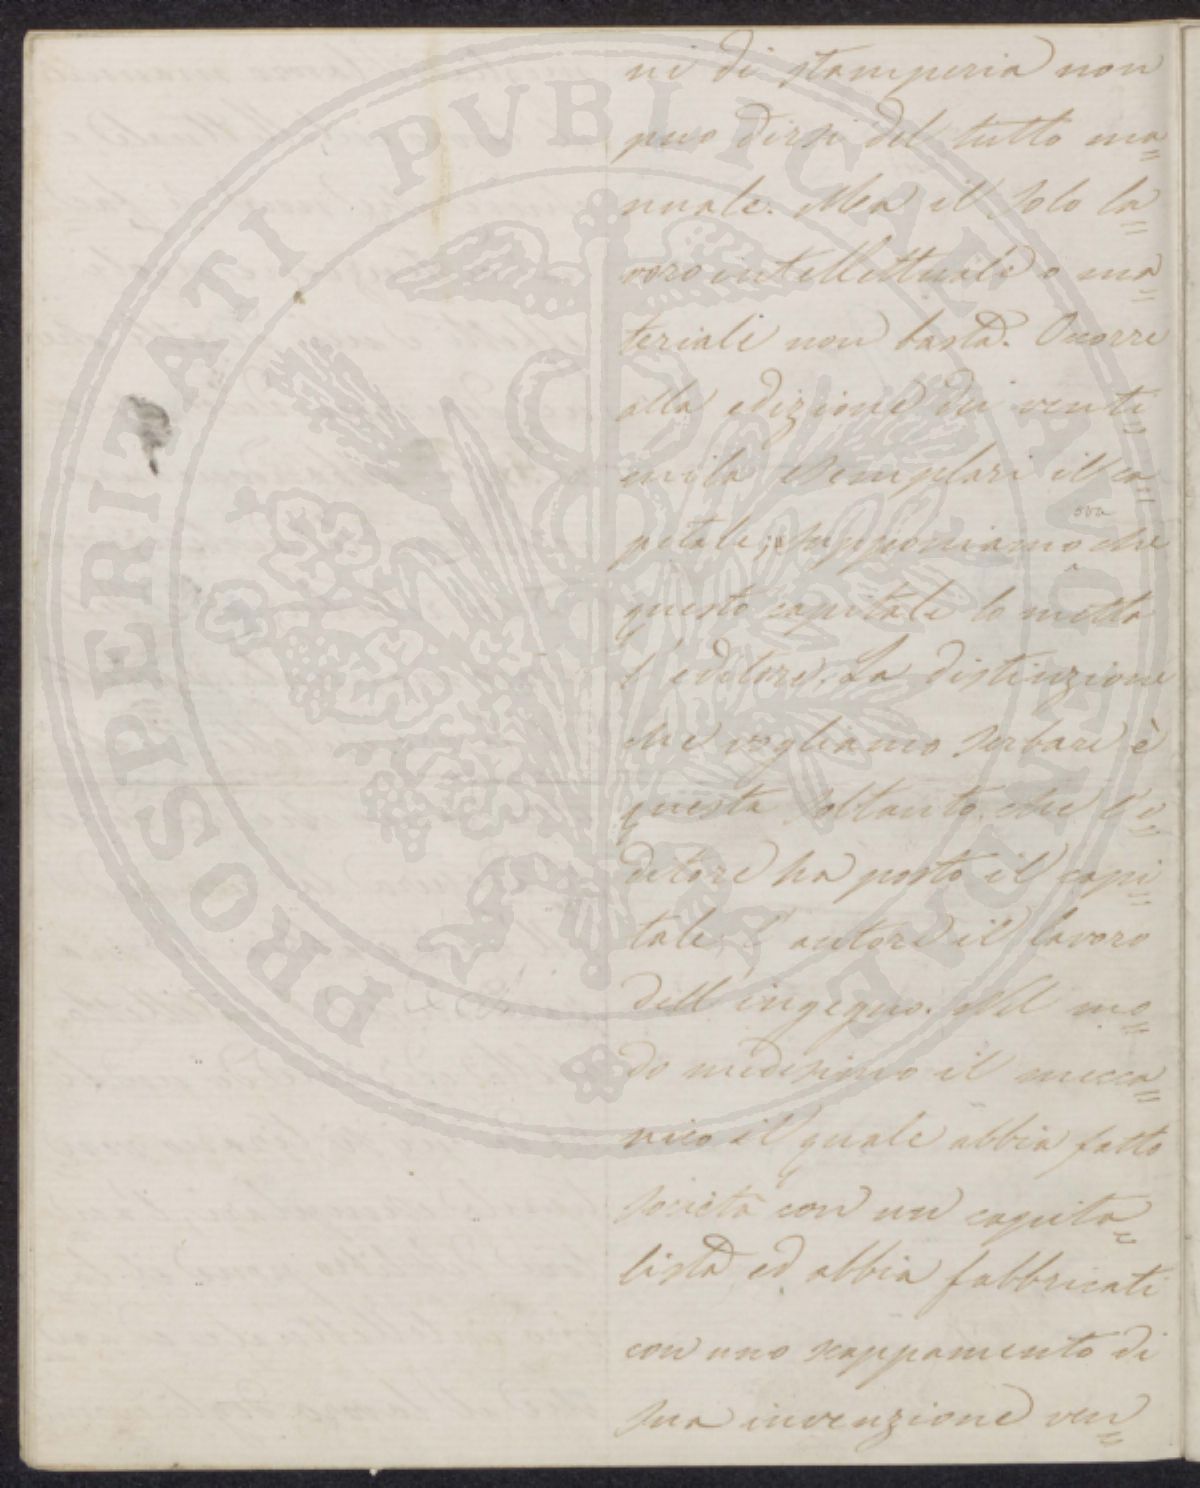 ni di stamperia non
puo dirsi del tutto ma=
nuale. Ma il solo la=
voro intellettuale o ma=
teriale non basta. Occorre
alla edizione dei venti=
mila esemplari il ca=
ora
pitale; supponiamo che
questo capitale lo metta
l'editore. La distinzione
che vogliamo serbare è
questa soltanto, che l'e=
ditore ha posto il capi=
tale, l'autore il lavoro
dell'ingegno. Nel mo=
do medesimo il mecca=
nico il quale abbia fatto
società con un capita=
lista ed abbia fabbricati
con uno scappamento di
sua invenzione ven=
PROSPERITATI PVBLICAE AVGENDAE